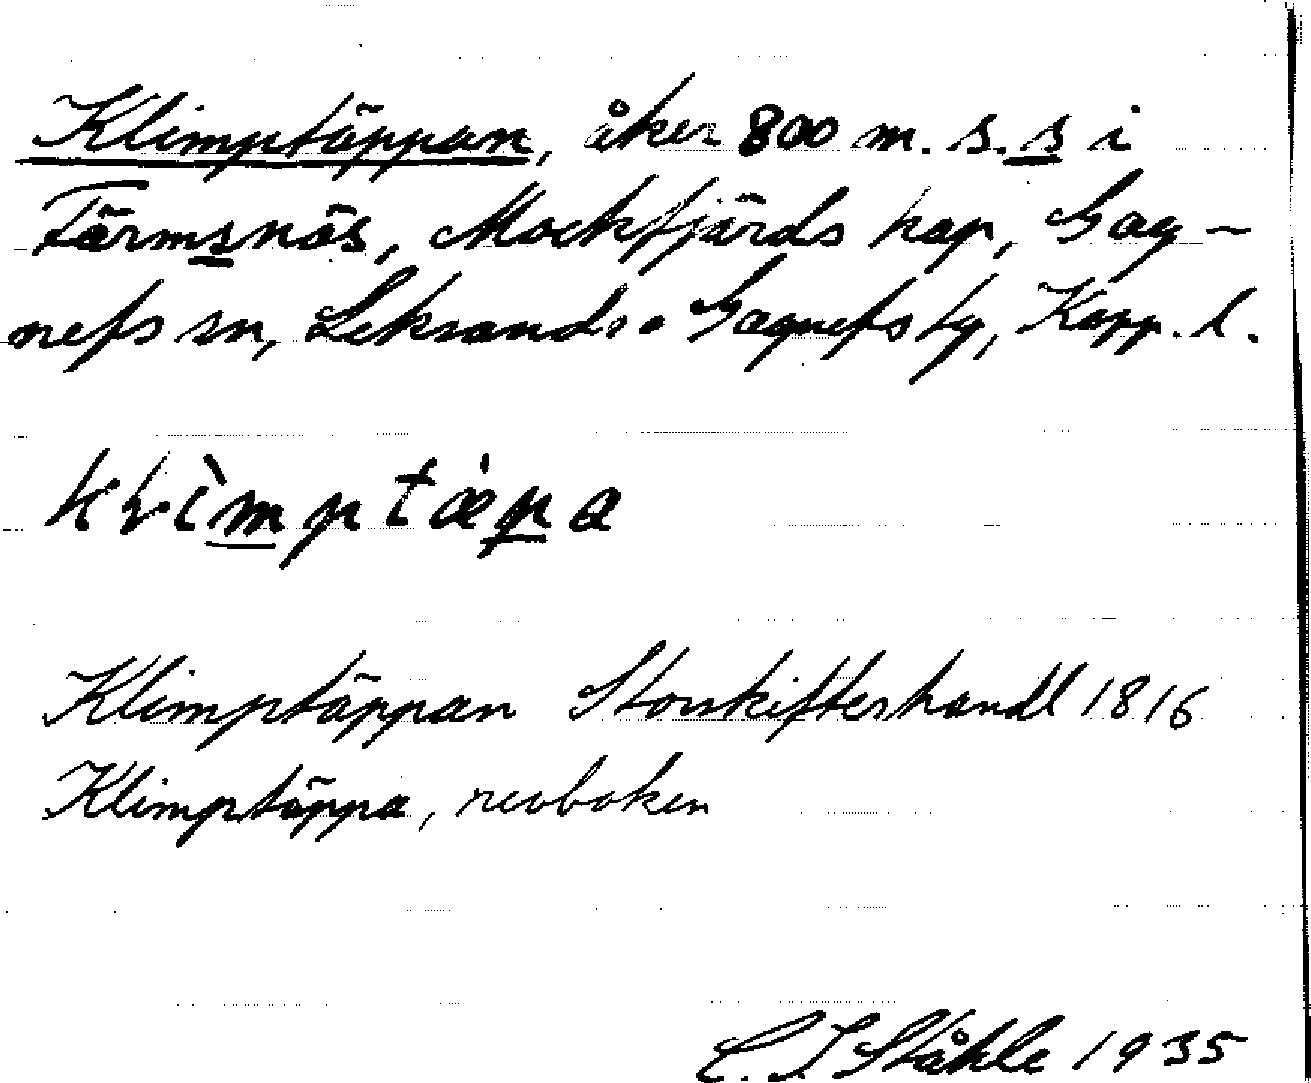 Klimptäppan, åker 800 m. s. s i
Färmsnäs, Mockfjärds kap, Gag-
nefs sn, Leksands o Gagnefs tg, Kopp. l.
Klimptäppan Storskifteshandl 1816
Klimptäppa, revboken
C. I Ståhle 1935